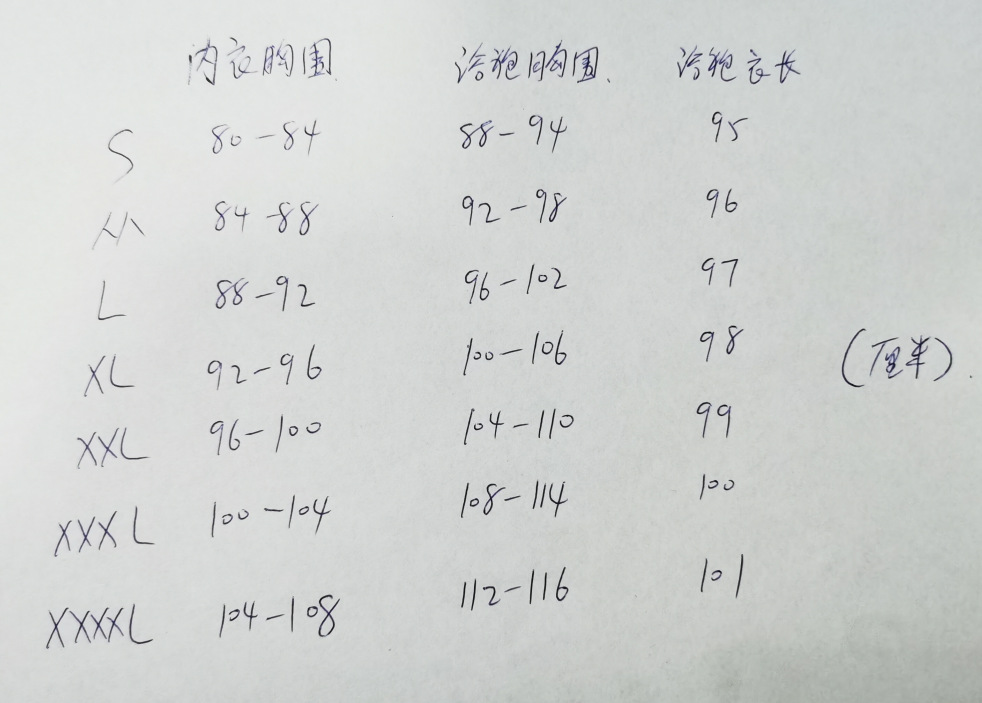 内衣胸围 浴袍胸围 浴袍衣长
S 80-84 88-94 95
M 84-88 92-98 96
L 88-92 96-102 97
XL 92-96 100-106 98 (厘米)
XXL 96-100 104-110 99
XXXL 100-104 108-114 100
XXXXL 104-108 112-116 101